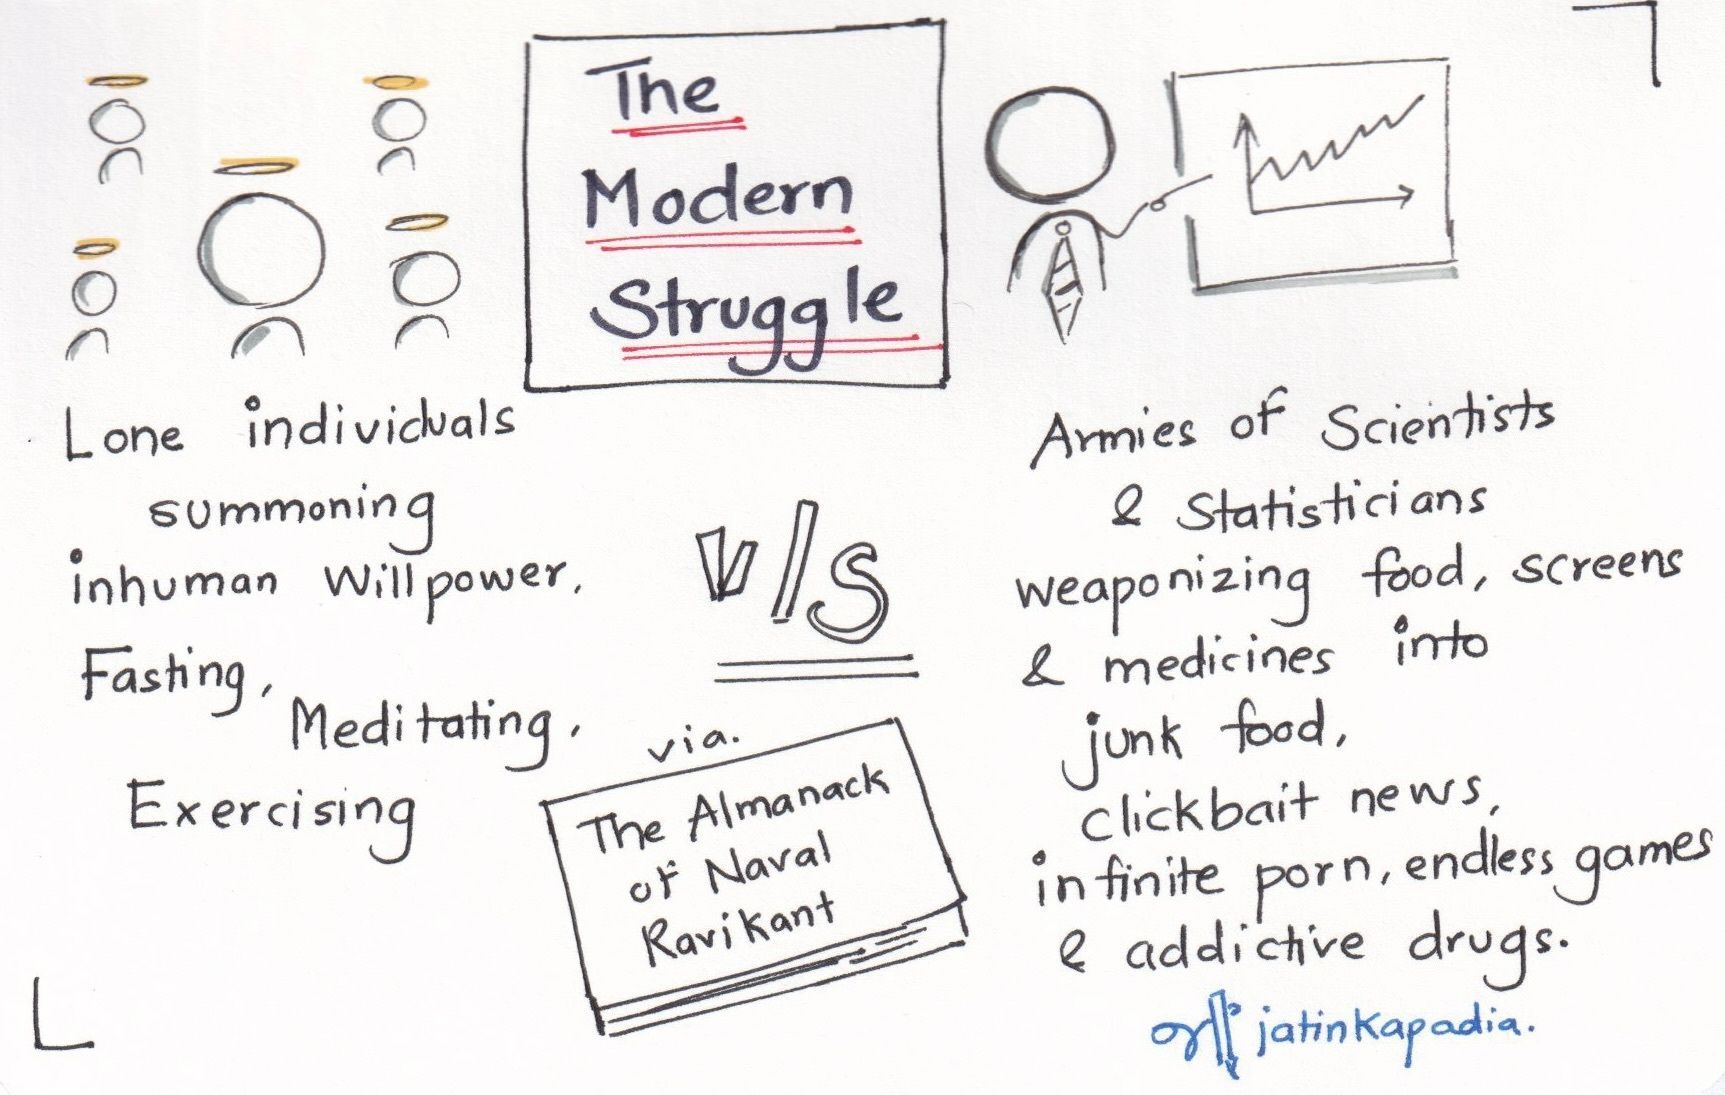 The
Modern
Struggle
Lone individuals
summoning
inhuman Willpower.
Fasting,
Meditating,
Exercising
v/s
via.
The Almanack
of Naval
Ravikant
Armies of Scientists
& Statisticians
weaponizing food, screens
& medicines into
junk food,
clickbait news,
infinite porn, endless games
& addictive drugs.
jatinkapadia.